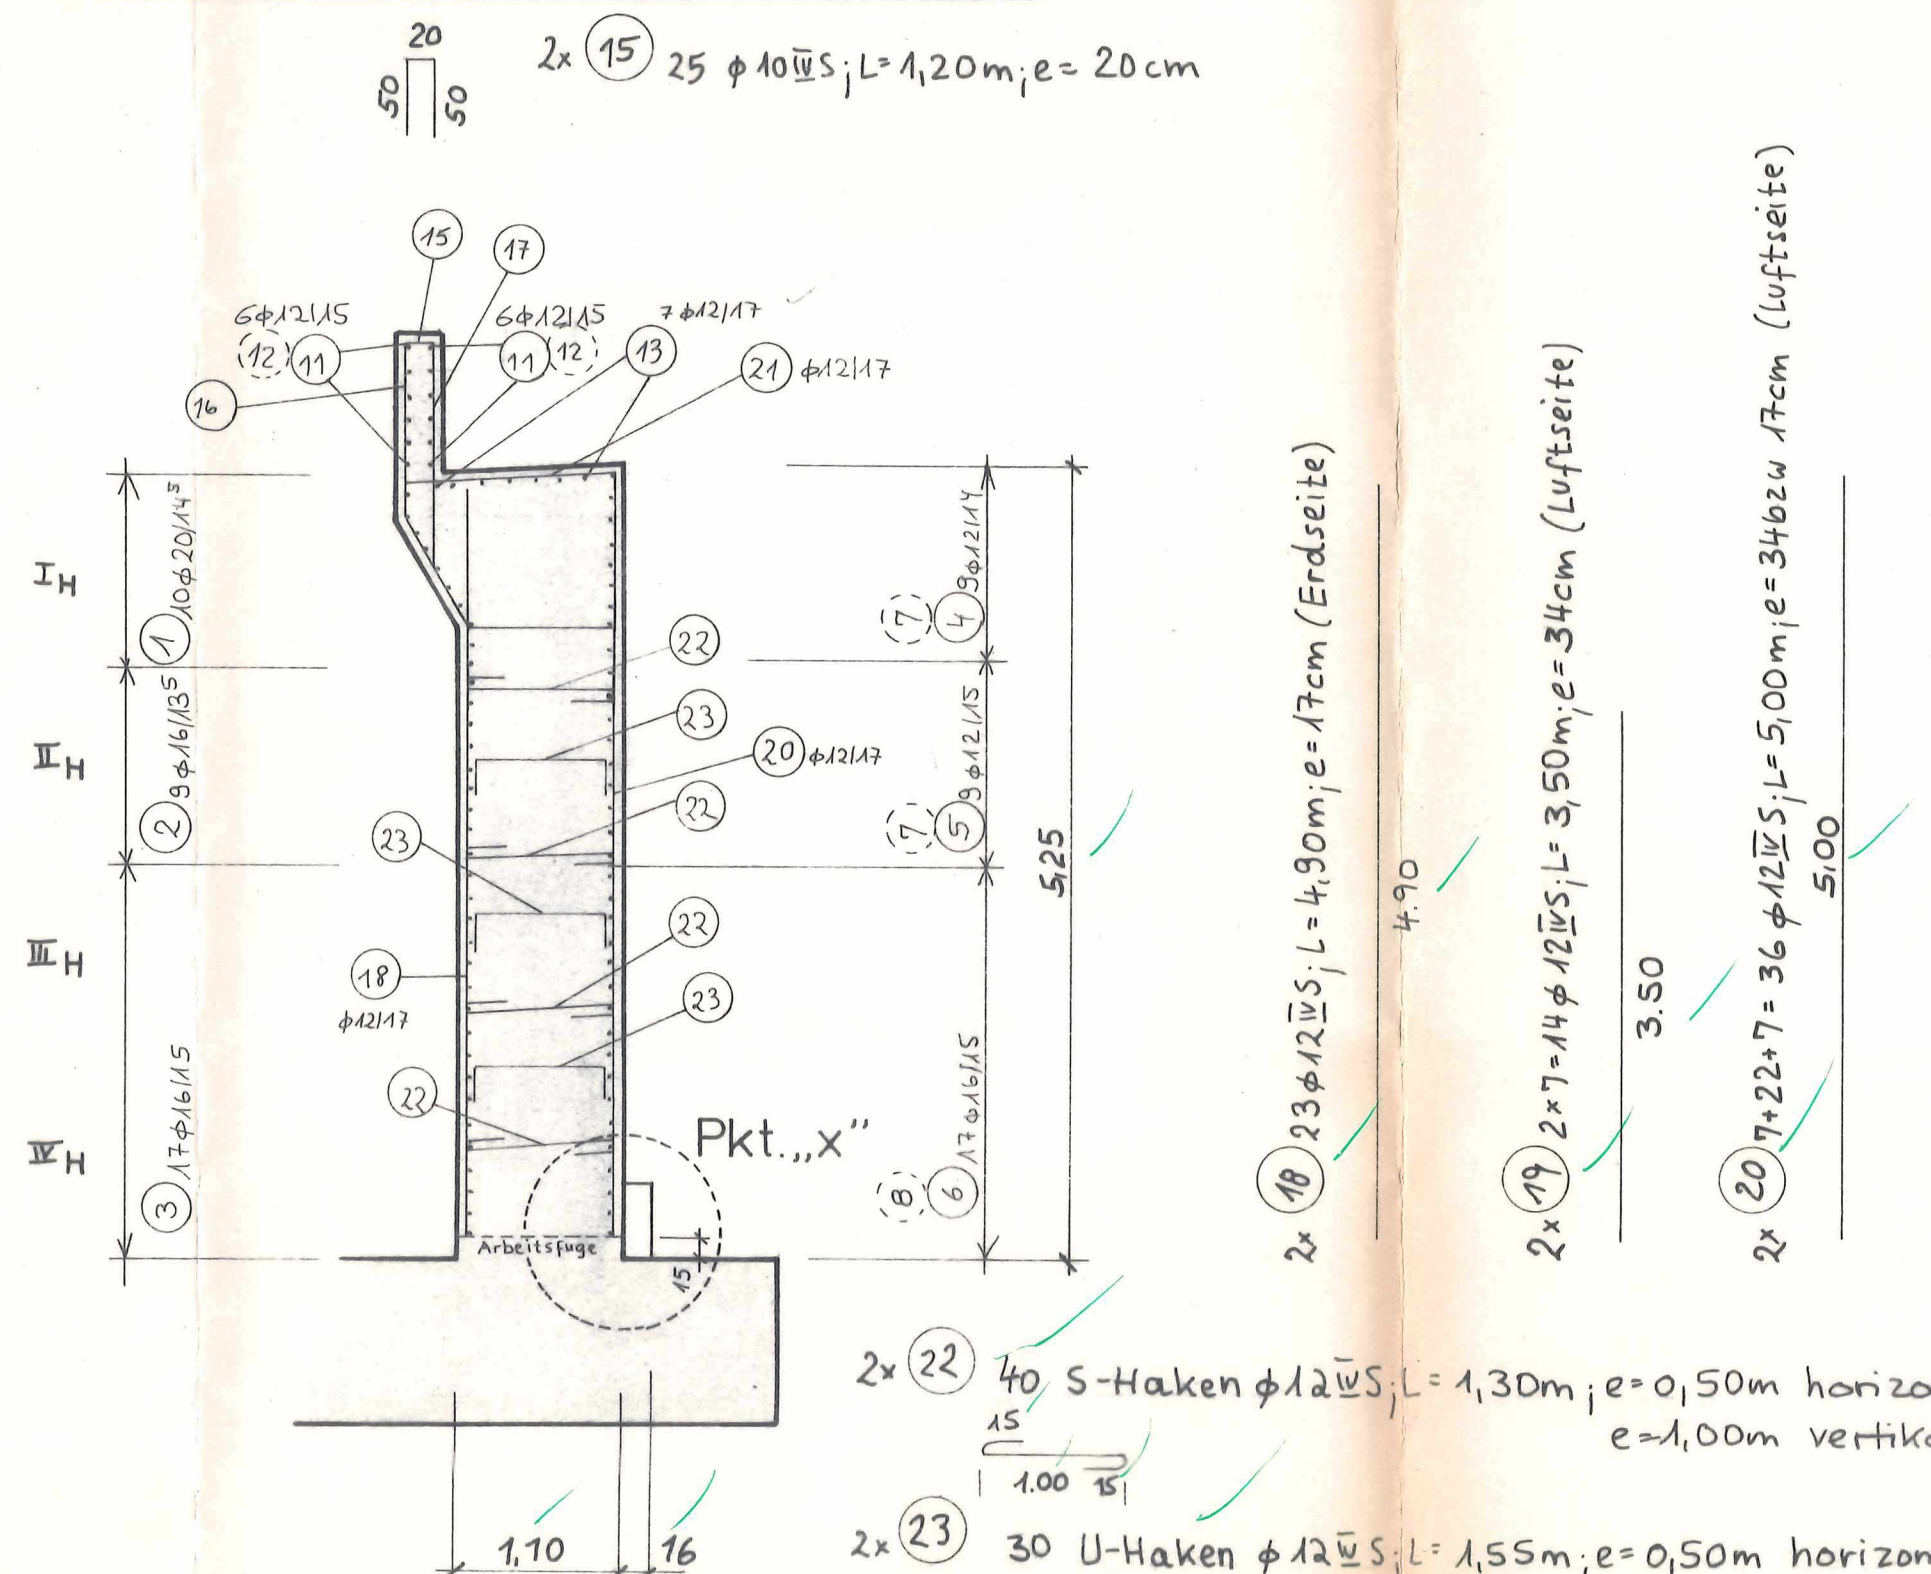 20
50 50
2x 15 25 ϕ 10 IV S; L= 1,20m; e= 20cm
15
17
6ϕ12/15
12 11
6ϕ12/15
11 12
7ϕ12/17
13
21 ϕ12/17
16
I H
II H
III H
IV H
1 10ϕ20/14⁵
2 9ϕ16/13⁵
3 17ϕ16/15
22
23
20 ϕ12/17
22
23
22
18
ϕ12/17
23
22
Pkt. „x"
Arbeitsfuge
15
7 4 9ϕ12/14
7 5 9ϕ12/15
8 6 17ϕ16/15
5,25
1,10
16
2x 18 23 ϕ 12 IV S; L= 4,90m; e= 17cm (Erdseite)
4.90
2x 19 2x7=14 ϕ 12 IV S; L= 3,50m; e= 34cm (Luftseite)
3.50
2x 20 7+22+7= 36 ϕ 12 IV S; L= 5,00m; e= 34bzw 17cm (Luftseite)
5,00
2x 22 40 S-Haken ϕ 12 IV S; L= 1,30m; e= 0,50m horizo
e=1,00m vertik
15
1.00 15
2x 23 30 U-Haken ϕ 12 IV S; L= 1,55m; e= 0,50m horizon